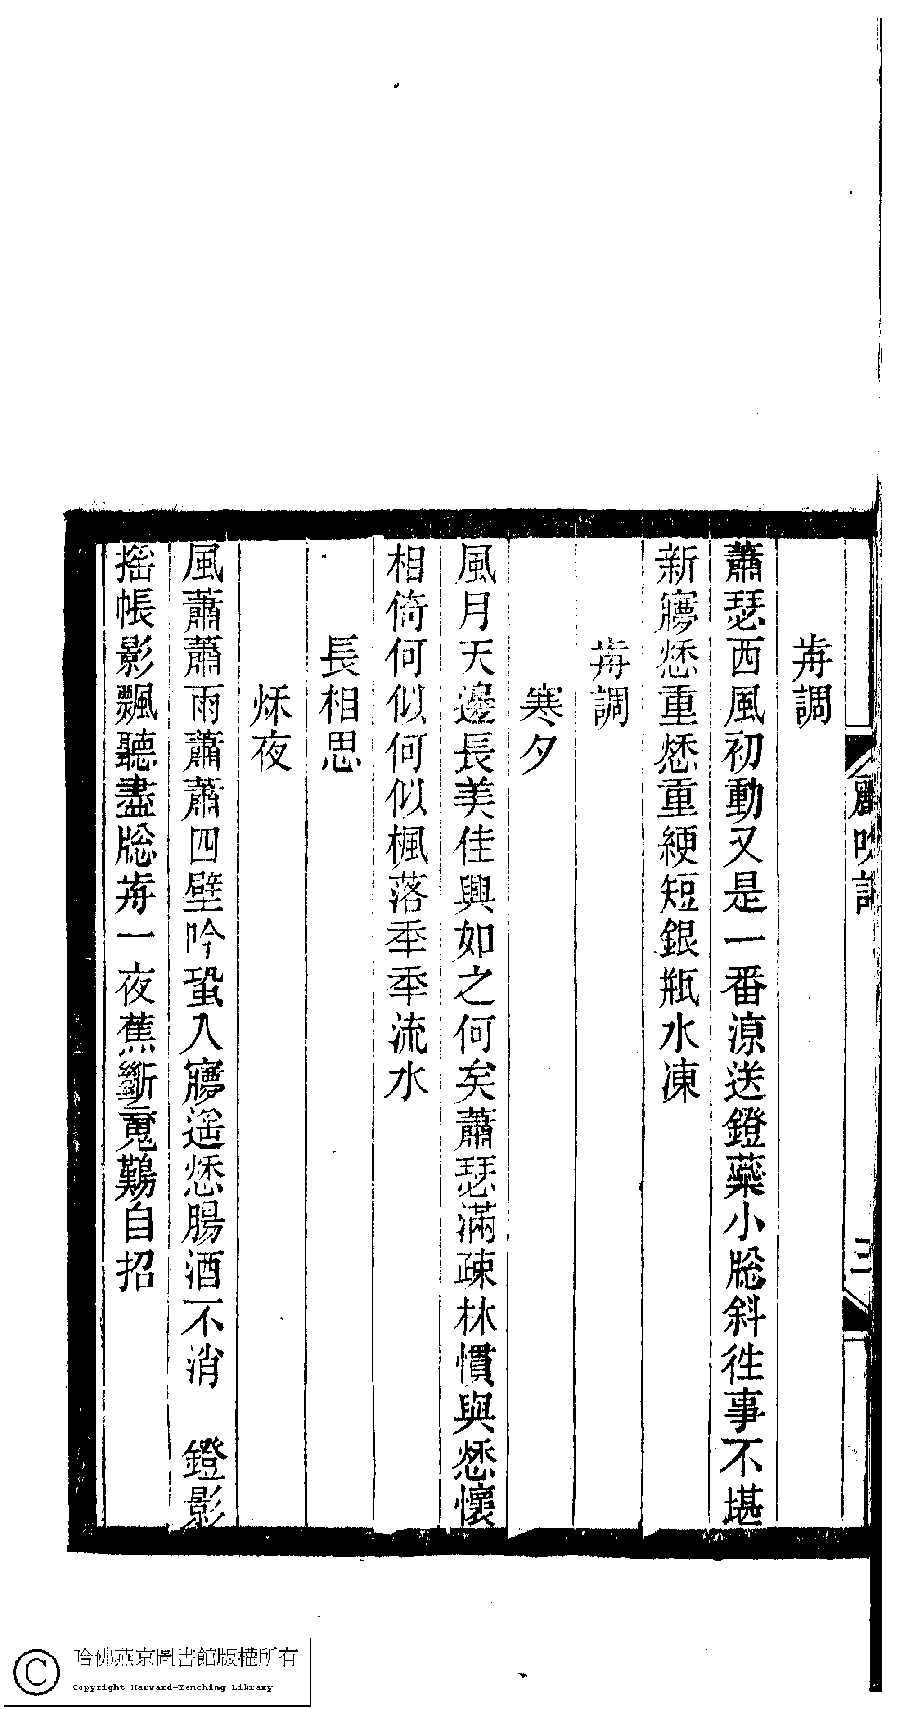 歬調
蕭瑟西風初動又是一番涼送鐙蘂小牕斜徃事不堪
新㝱愁重愁重綆短銀瓶水凍
歬調
寒夕
風月天邊長美佳興如之何矣蕭瑟滿疎林慣與愁懷
相倚何似何似楓落秊秊流水
長相思
秌夜
風蕭蕭雨蕭蕭四壁吟蛩入㝱遥愁腸酒不消　鐙影
搖帳影飄聽盡牕歬一夜蕉斷䰟難自招
三
哈佛燕京圖書館版權所有
Copyright Harvard-Yenching Library